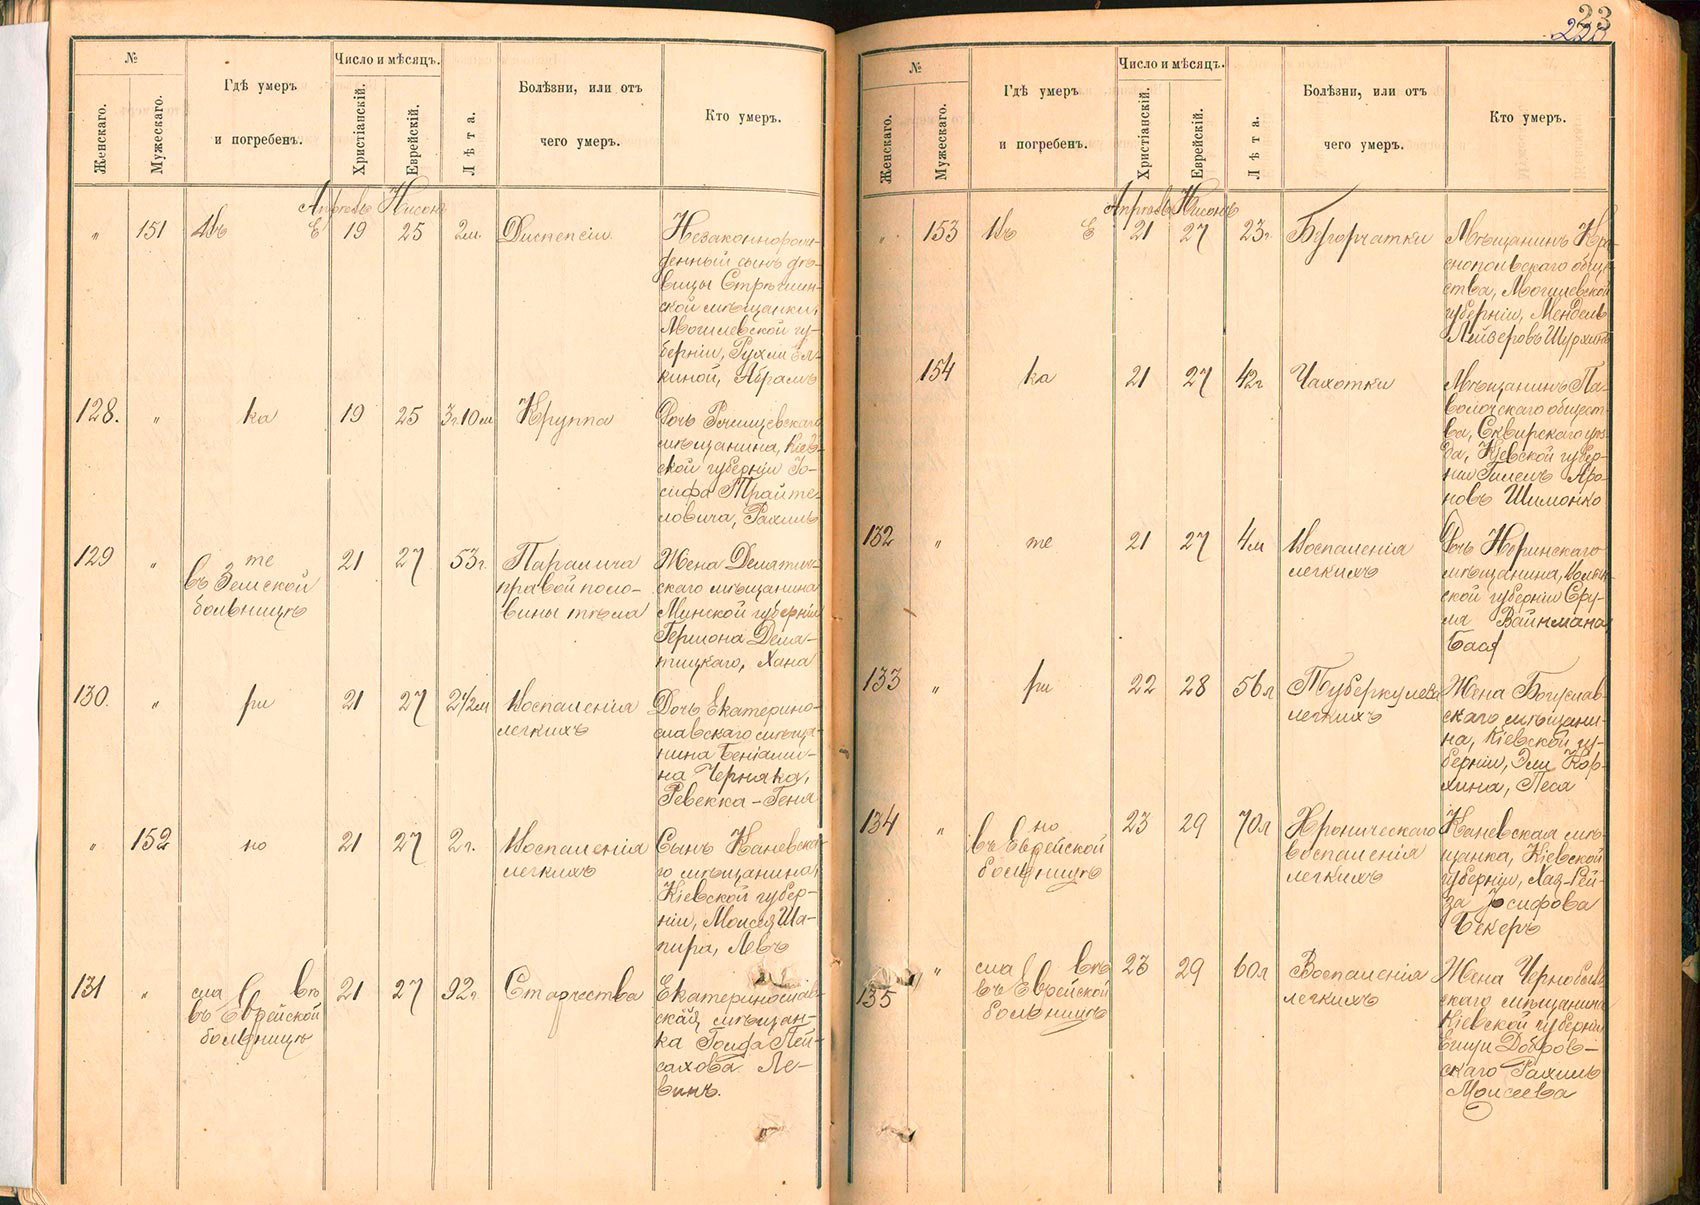 23
223
№
Женскаго.
Мужескаго.
Гдѣ умеръ
и погребенъ.
Число и мѣсяцъ.
Христіанскій.
Еврейскій.
Лѣта.
Болѣзни, или отъ
чего умеръ.
Кто умеръ.
Апрель Нисонъ
" 151 Въ Е 19 25 2м. Диспепсіи
Незаконнорож-
денный сынъ дѣ-
вицы Стрѣшин-
ской мѣщанки,
Могилевской гу-
берніи, Рухли Ел-
киной, Абрамъ
128. " ка 19 25 3г.10м Круппа
Дочь Ржищевскаго
мѣщанина, Кіев-
ской губерніи Іо-
сифа Трайте-
ловича, Рахиль
129 " те 21 27 53г. Паралича
въ Земской правой поло-
больницѣ вины тѣла
Жена
скаго мѣщанина
Минской губерніи
тицкаго, Хана
130. " ри 21 27 2 1/2м Воспаленія
легкихъ
Дочь Екатерино-
славскаго мѣща-
нина Беніами-
на Черняка,
Ревекка-Геня
" 152 но 21 27 2г. Воспаленія
легкихъ
Сынъ Каневска-
го мѣщанина,
Кіевской губер-
ніи, Моисея Ша-
пира, Левъ
131 " сла въ 21 27 92г. Старчества
въ Еврейской
больницѣ
Екатеринослав-
ская мѣщан-
ка Голда Пей-
сахова Ле-
винъ.
№
Женскаго.
Мужескаго.
Гдѣ умеръ
и погребенъ.
Число и мѣсяцъ.
Христіанскій.
Еврейскій.
Лѣта.
Болѣзни, или отъ
чего умеръ.
Кто умеръ.
Апрель Нисонъ
" 153 Въ Е 21 27 23г. Бугорчатки
Мѣщанинъ Кра-
снопольскаго обще-
ства, Могилевской
губерніи, Мендель
Лейзеровъ Шурхинъ
154 ка 21 27 42г Чахотки
Мѣщанинъ Па-
волочскаго общест-
ва, Сквирскаго уѣз-
да, Кіевской губер-
ніи Гилель Аро-
новъ Шимонко
132 " те 21 27 4м Воспаленія
легкихъ
Дочь Норинскаго
мѣщанина, Волын-
ской губерніи Сру-
ля Вайнмана,
Бася
133 " ри 22 28 56л Туберкулеза
легкихъ
Жена Богуслав-
скаго мѣщани-
на, Кіевской гу-
берніи, Эли Кор-
хина, Песя
134 " но 23 29 70л Хроническаго
въ Еврейской воспаленія
больницѣ легкихъ
Каневская мѣ-
щанка, Кіевской
губерніи, Хая-Рей-
за Іосифова
Бекеръ
135 " сла въ 23 29 60л Воспаленія
въ Еврейской легкихъ
больницѣ
Жена Чернобыль-
скаго мѣщанина
Кіевской губерніи
Добров-
скаго Рахиль
Моисеева